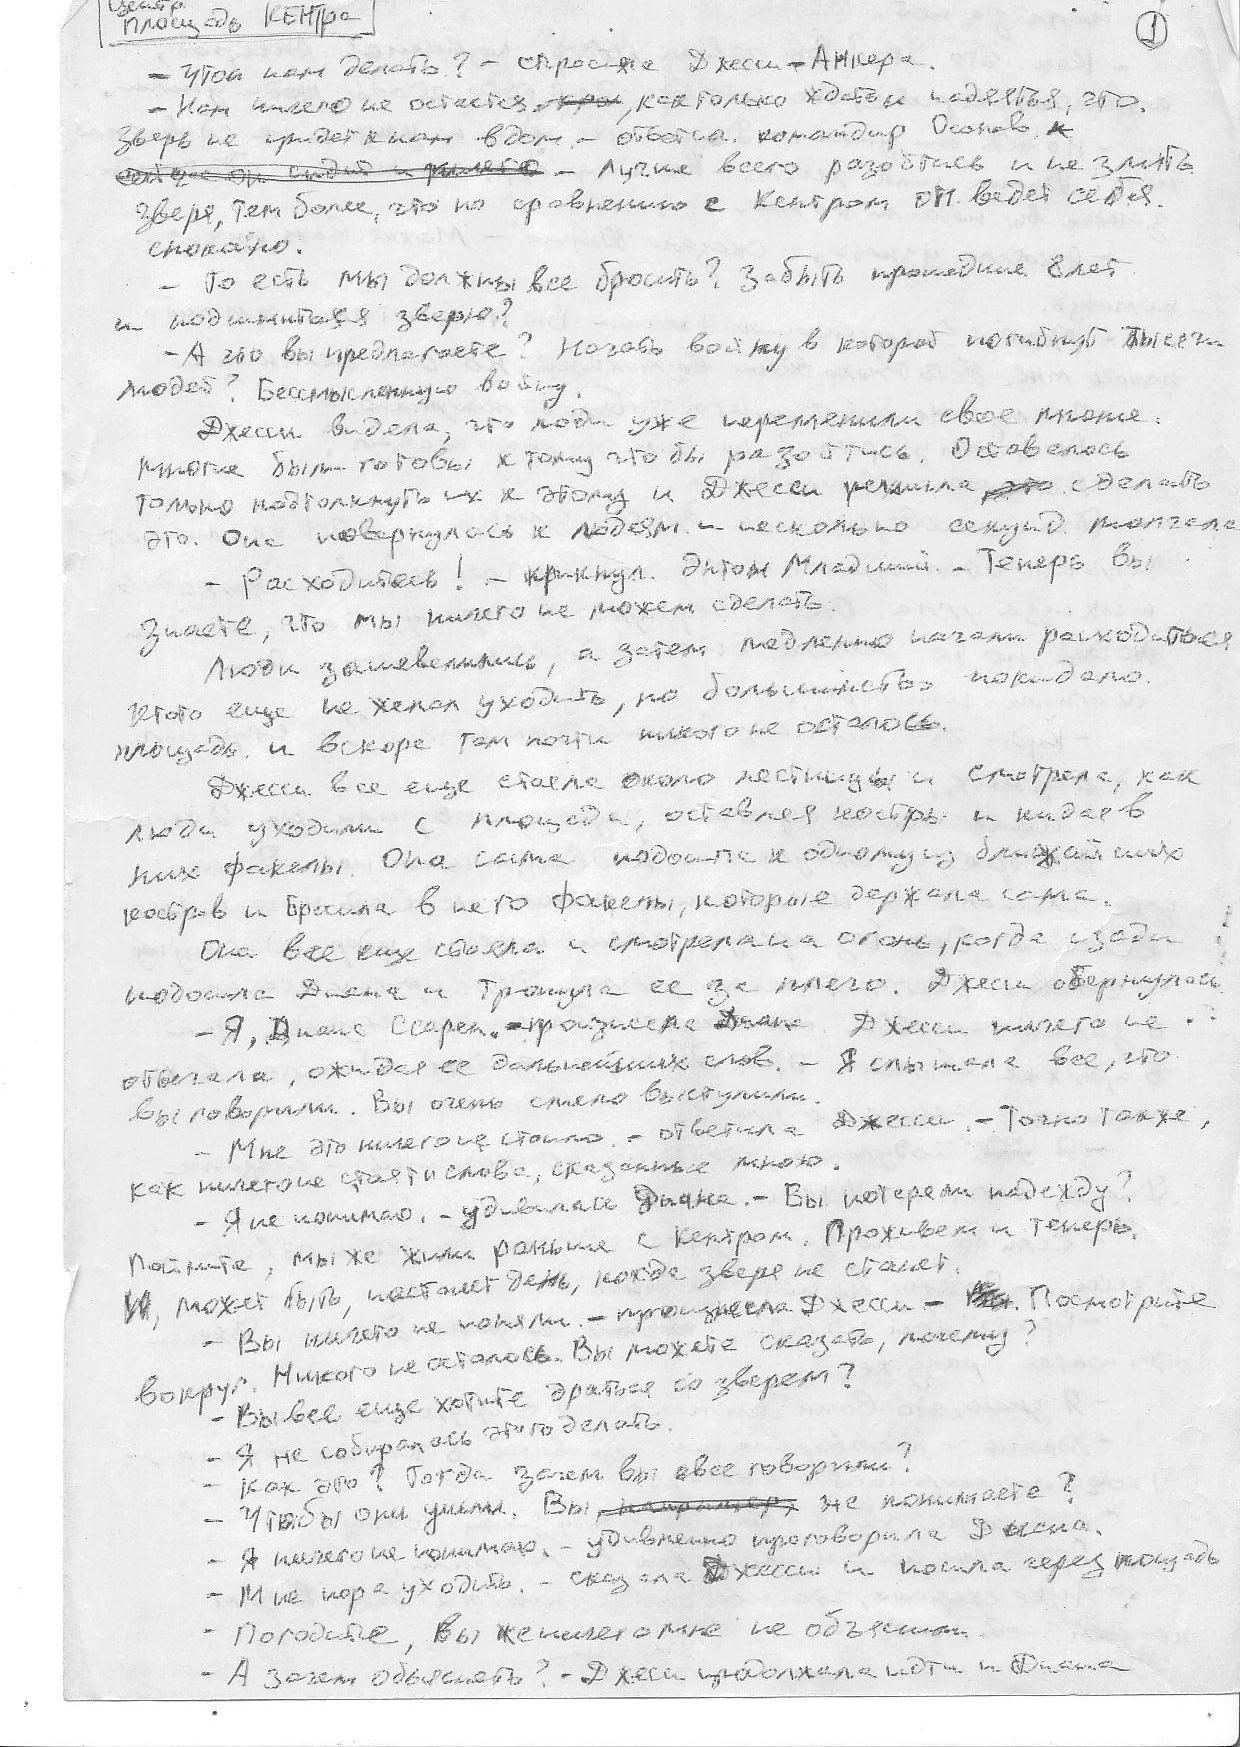 Центр
площадь Кентра
1
- Что нам делать? - спросила Джесси-Анкера.
- Нам ничего не остается, как только ждать и надеяться, что.
зверь не придет к нам в дом. - ответил. командир Осонов.
- Лучше всего разойтись и не злить
зверя, тем более, что по сравнению с Кентром он ведет себя.
спокойно.
- То есть мы должны все бросить? Забыть прошедшие 8 лет
и подчиниться зверю?
- А что вы предлагаете? Начать войну в которой погибнут тысячи
людей? Бессмысленную войну.
Джесси видела, что люди уже переменили свое мнение.
Многие были готовы к тому что бы разойтись. Оставалось
только подтолкнуть их к этому и Джесси решила сделать
это. Она повернулась к людям. и несколько секунд молчала
- Расходитесь! - крикнул. Энтон Младший. - Теперь вы
знаете, что мы ничего не можем сделать.
Люди зашевелились, а затем медленно начали расходиться
Ктото еще не желал уходить, но большинство покидало.
площадь. и вскоре там почти никого не осталось.
Джесси все еще стояла около лестницы и смотрела, как
люди уходили с площади, оставляя костры и кидая в
них факелы. Она сама подошла к одному из ближайших
костров и бросила в него факелы, которые держала сама.
Она все еще стояла и смотрела на огонь, когда сзади
подошла Диана и тронула ее за плечо. Джесси обернулась.
- Я, Диана Ссарен. - произнесла Диана. Джесси ничего не
отвечала, ожидая ее дальнейших слов. - Я слышала все, что
вы говорили. Вы очень смело выступили.
- Мне это ничего не стоило. - ответила Джесси. - Точно также,
как ничего не стоят и слова, сказанные мною.
- Я не понимаю. - удивилась Диана. - Вы потеряли надежду?
Поймите, мы же жили раньше с Кентром. Проживем и теперь.
И, может быть, настанет день, когда зверя не станет.
- Вы ничего не поняли. - произнесла Джесси - Посмотрите
вокруг. Никого не осталось. Вы можете сказать, почему?
- Вы все еще хотите драться со зверем?
- Я не собиралась этого делать.
- Как это? Тогда зачем вы все говорили?
- Чтобы они ушли. Вы же понимаете?
- Я ничего не понимаю. - удивленно проговорила Диана.
- Мне пора уходить. - сказала Джесси и пошла через площадь
- Погодите, вы же ничего мне не объяснили.
- А зачем объяснять? - Джесси продолжала идти и Диана